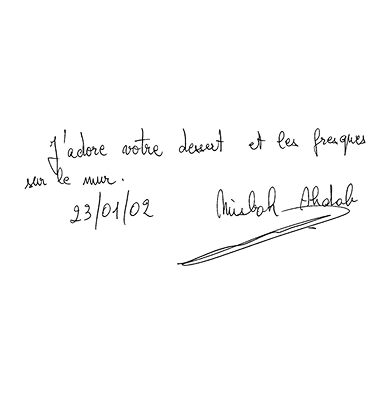 J'adore votre dessert et les fresques
sur le mur.
23/01/02 Misbah Ahdab